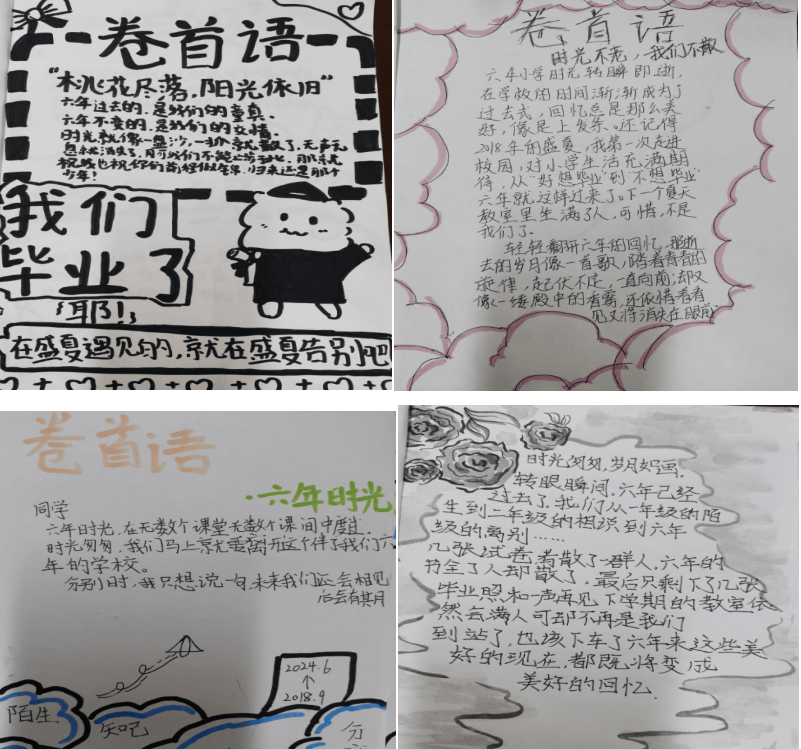 卷首语
"桃花尽落,阳光依旧"
六年过去的,是我们的童真。
六年不变的,是我们的友情。
时光就像一盘沙,一吹就散了,无声无
少年!
我们
毕业了
耶!
在盛夏遇见的,就在盛夏告别吧
卷首语
时光不老,我们不散
六年小学时光转瞬即逝,
在学校的时间渐渐成为了
过去式,回忆总是那么美
好,像是上发条。还记得
2018年的盛夏,我第一次走进
校园,对小学生活充满期
待,从"好想毕业"到"不想毕业"
六年就这样过来了。下一个夏天
教室里坐满了人,可惜,不是
我们了。
轻轻翻开六年的回忆,那逝
去的岁月像一首歌,踏着青春的
旋律,起伏不定,一直向前,却又
像一缕殿中的香雾,还依惜看着
见又将消失在眼前
卷首语
·六年时光
同学
六年时光,在无数个课堂无数个课间中度过.
时光匆匆,我们马上就要离开这个伴了我们六
年的学校。
分别时,我只想说一句,未来我们还会相见
后会有期
2024.6
↑
2018.9
陌生
矢口
分
时光匆匆,岁月如画.
转眼瞬间,六年已经
过去了,我们从一年级的陌
生到二年级的相识到六年
级的离别……
几张试卷考散了一群人,六年的
书全了人却散了,最后只剩下了几张
毕业照和一声再见下学期的教室依
然会满人可却不再是我们
到站了,也该下车了六年来这些美
好的现在,都既将变成
美好的回忆.